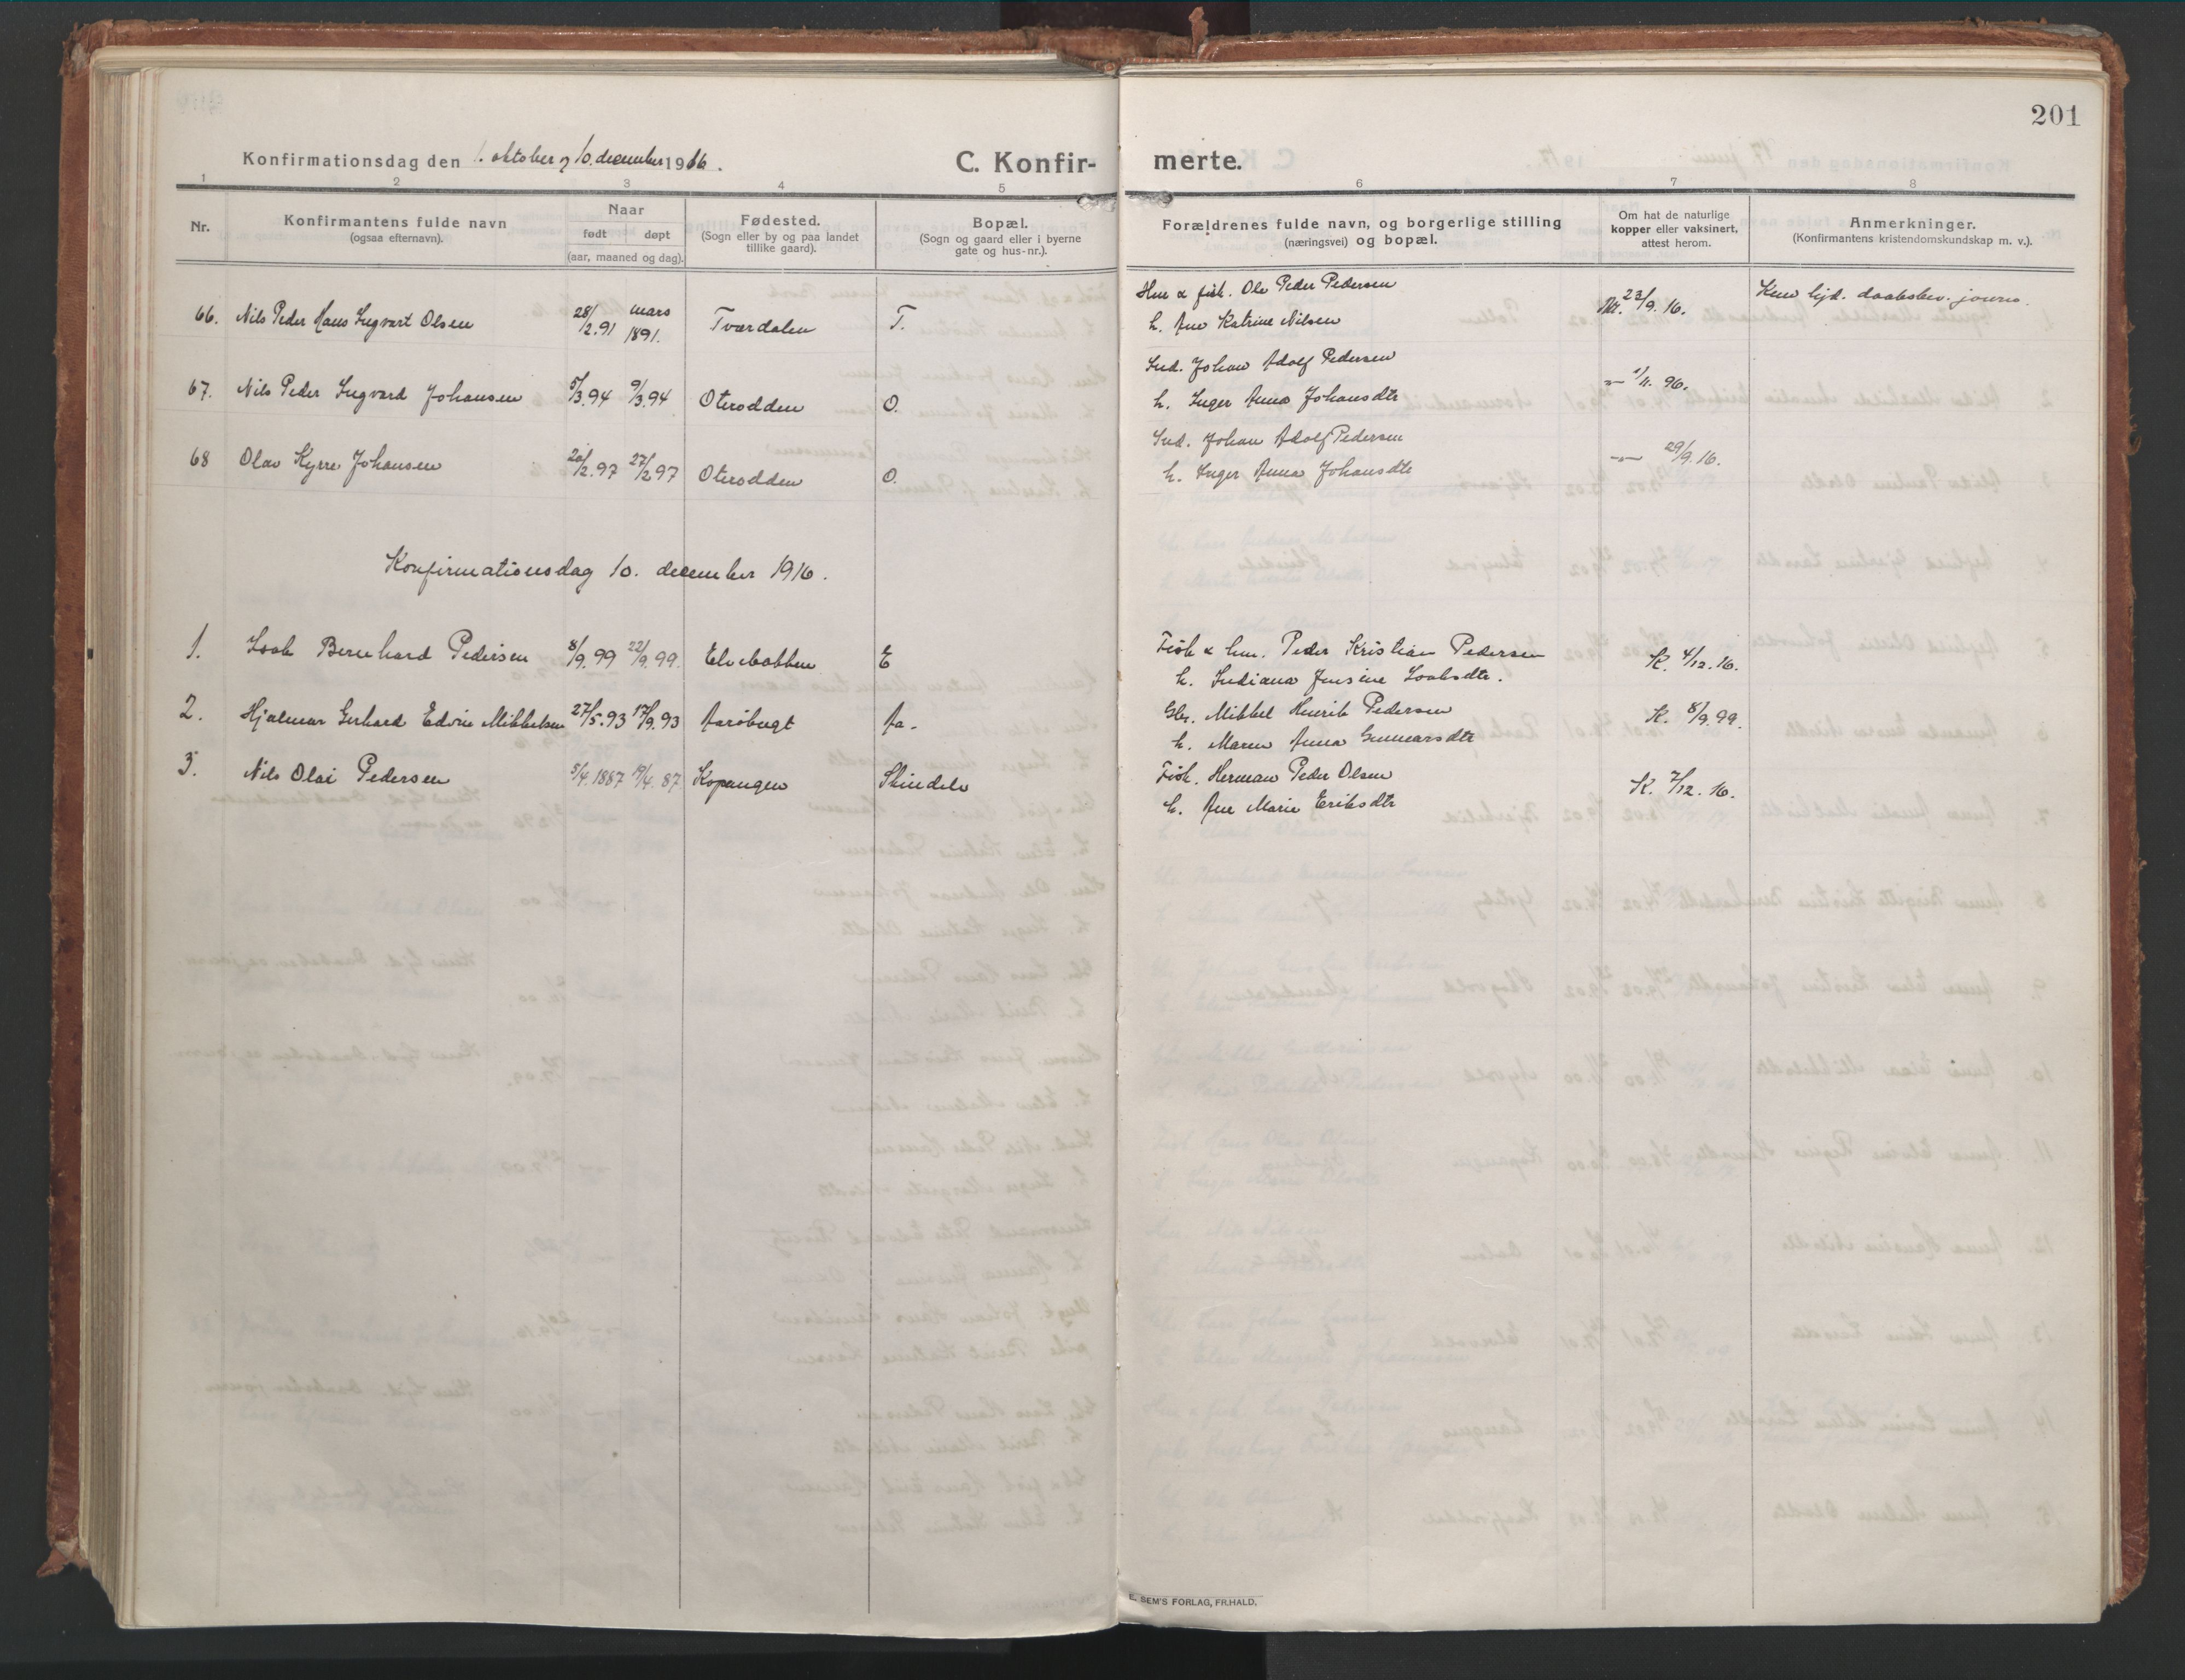 201
Konfirmationsdag den 1. oktober og 10. december 1916.
C. Konfir-
merte.
1 2 3 4 5 6 7 8
Nr.
Konfirmantens fulde navn
(ogsaa efternavn).
Naar
født døpt
(aar, maaned og dag).
Fødested.
(Sogn eller by og paa landet
tillike gaard).
Bopæl.
(Sogn og gaard eller i byerne
gate og hus-nr.).
Forældrenes fulde navn, og borgerlige stilling
(næringsvei) og bopæl.
Om hat de naturlige
kopper eller vaksinert,
attest herom.
Anmerkninger.
(Konfirmantens kristendomskundskap m. v.).
66. Nils Peder Hans Ingvart Olsen 28/2.91 mars 1891. Tværdalen T.
Hm & fisk. Ole Peder Pedersen
h. Ane Katrine Nilsen
23/9. 16.
Kun hjd. daabsbev. journ.
67. Nils Peder Ingvard Johansen 5/3.94 9/3.94 Oterodden O.
Ind. Johan Adolf Pedersen
h. Inger Anna Johansdtr
-"- 1/11. 96.
68 Olav Kyrre Johansen 20/2.97 27/2 97 Oterodden O.
Ind. Johan Adolf Pedersen
h. Inger Anna Johansdtr
-"- 29/9. 16.
Konfirmationsdag 10. december 1916.
1. Isak Bernhard Pedersen 8/9.99 22/9.99. Elvebakken E
Fisk & hm. Peder Kristian Pedersen
h. Indiana Jensine Isaksdtr.
K. 4/12. 16.
2. Hjalmar Gerhard Edvin Mikkelsen 27/5.93 17/9.93 Aarøbugt Aa-
Gbr. Mikkel Henrik Pedersen
h. Maren Anna Gunnarsdtr
K. 8/9. 99.
3. Nils Olai Pedersen 5/4.1887 19/4. 87 Kopangen Skindelv
Fisk. Herman Peder Olsen
h. Ane Marie Eriksdtr
K. 7/12. 16.
E. SEM'S FORLAG, FR.HALD.